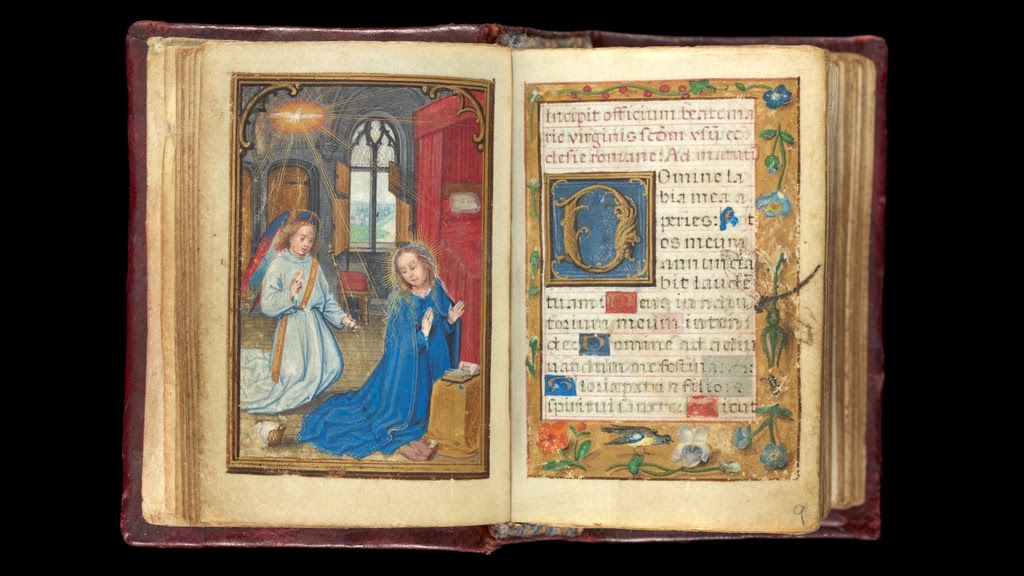 Incipit officium beate ma
rie virginis scdm usū ec
clesie romane: Ad matuti
Domine la
bia mea a
peries: Et
os meum
annuncia
bit laudē
tuam: Deus in adiu
torium meum inten
de: Domine ad adiu
uandum me festina:
Gloria patri et filio: et
spiritui sancto: Sicut
9